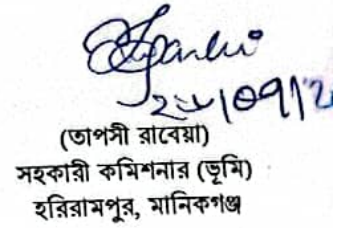 (তাপসী রাবেয়া)
সহকারী কমিশনার (ভূমি)
হরিরামপুর, মানিকগঞ্জ